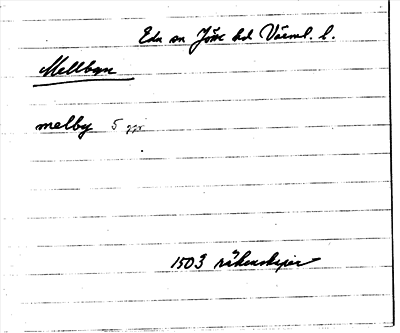 Eda sn Jösse hd Värml. l.
Mellbyn
melby 5 ggr
1503 räkenskaper